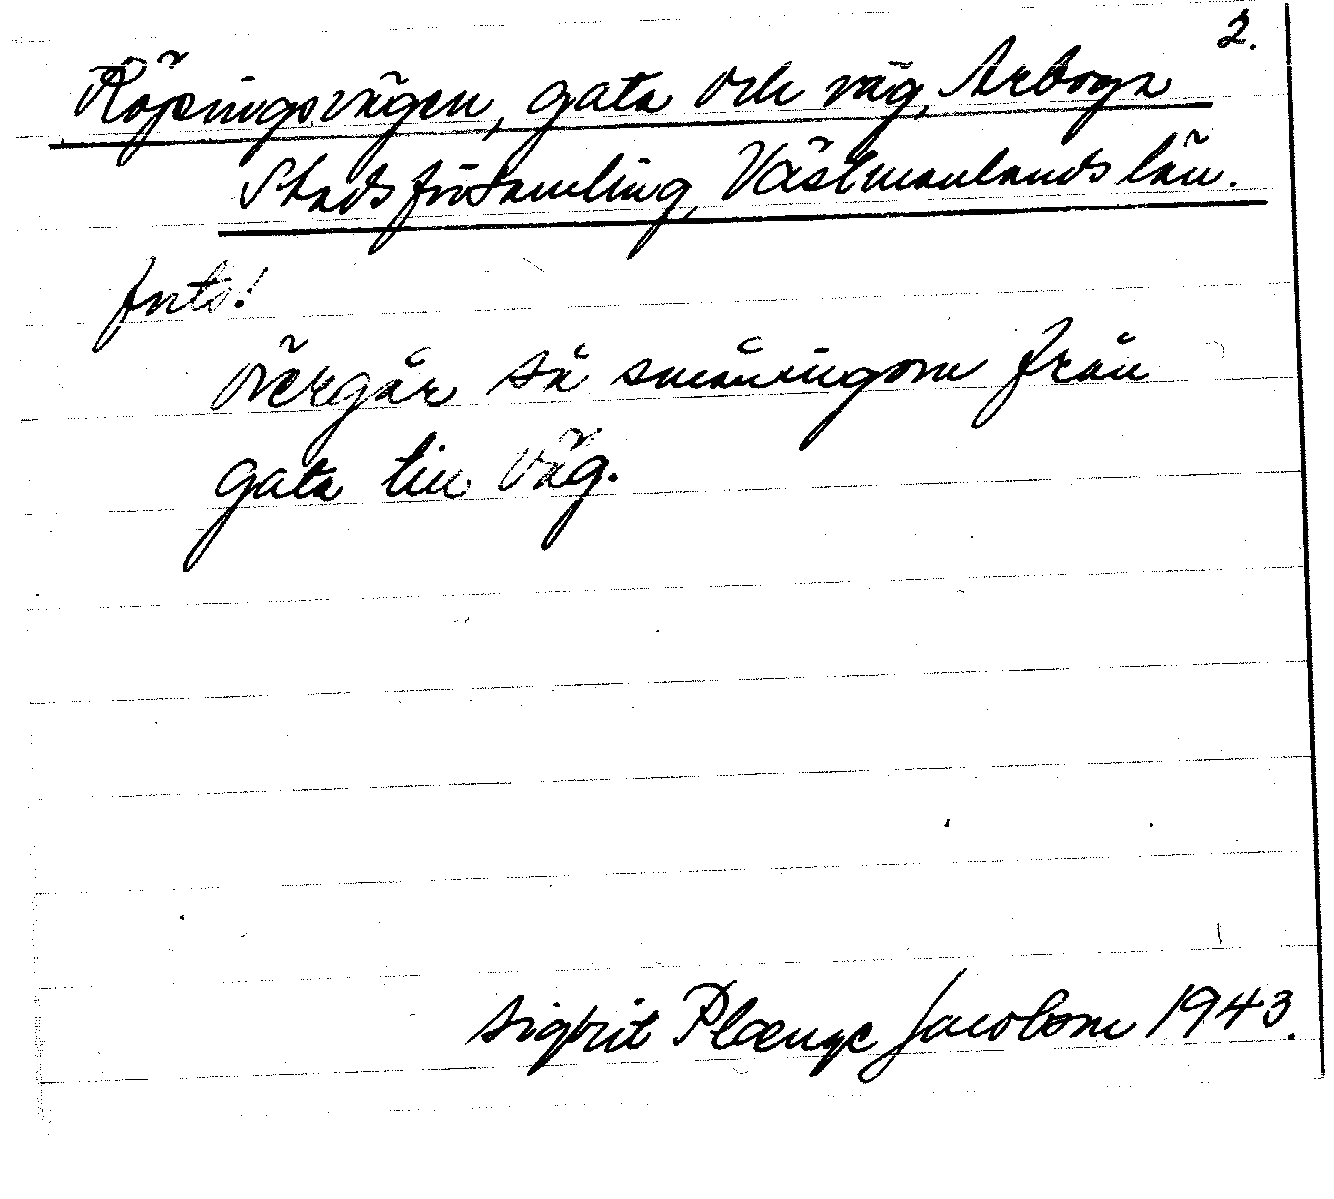 2.
Köpingsvägen, gata och väg, Arboga
Stadsförsamling, Västmanlands län.
forts!
övergår så småningom från
gata till väg.
Sigrid Plænge Jacobson 1943.